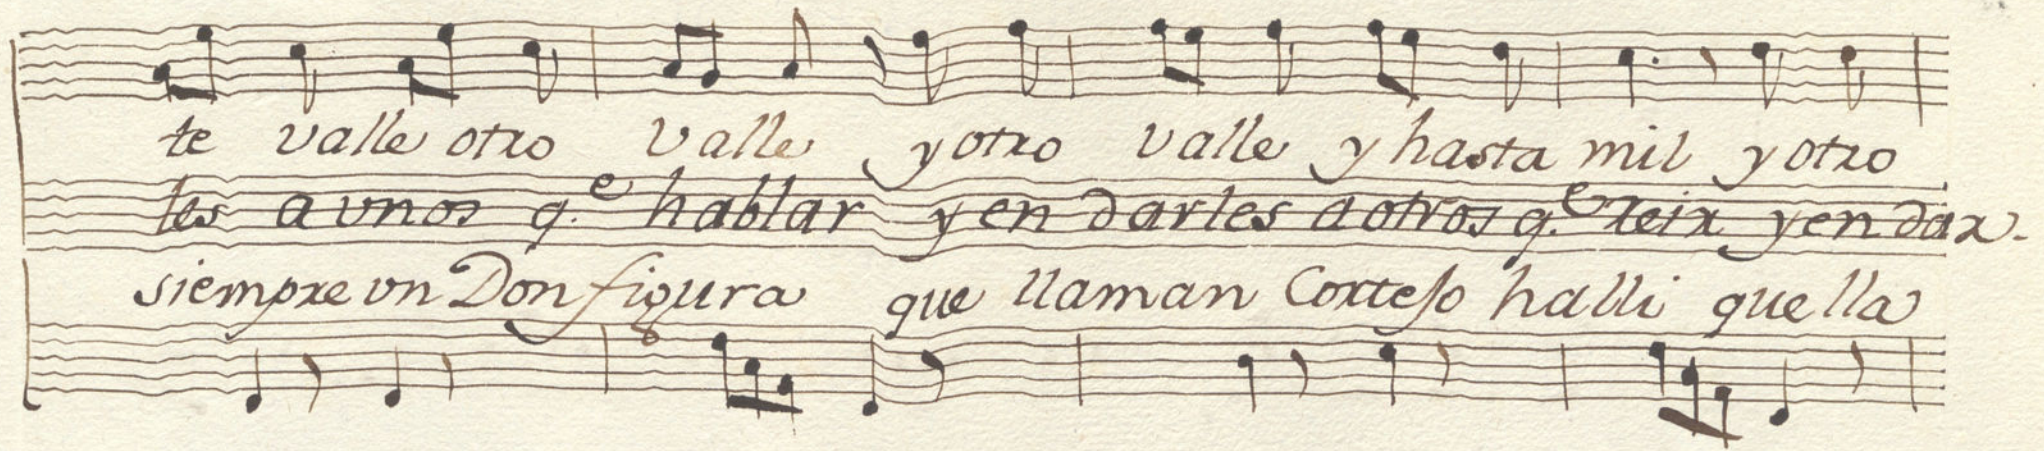 te valle otro valle y otro valle y hasta mil y otro
les a vnos q.e hablar y en darles a otros q.e reir y en dar-
siempre vn Don figura que llaman Cortejo halli que lla
8